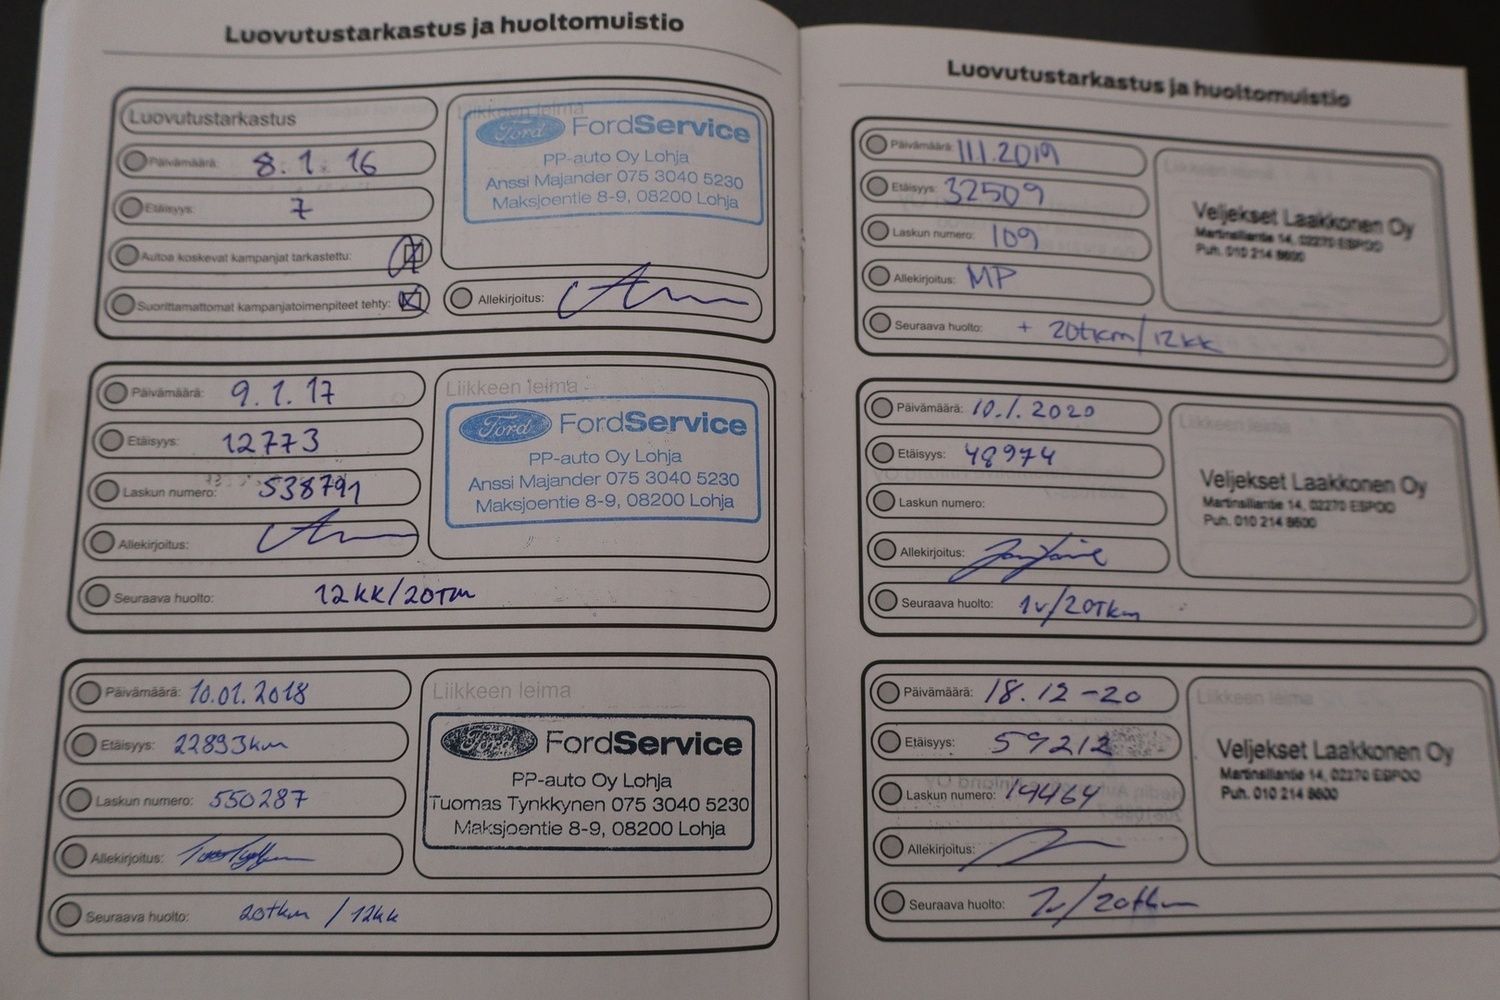 Luovutustarkastus ja huoltomuistio
Luovutustarkastus
Päivämäärä: 8.1.16
Etäisyys: 7
Autoa koskevat kampanjat tarkastettu:
Suorittamattomat kampanjatoimenpiteet tehty:
Liikkeen leima
Ford FordService
PP-auto Oy Lohja
Anssi Majander 075 3040 5230
Maksjoentie 8-9, 08200 Lohja
Allekirjoitus:
Päivämäärä: 9.1.17
Etäisyys: 12773
Laskun numero: 538791
Allekirjoitus:
Seuraava huolto: 12kk/20Tkm
Liikkeen leima
Ford FordService
PP-auto Oy Lohja
Anssi Majander 075 3040 5230
Maksjoentie 8-9, 08200 Lohja
Päivämäärä: 10.01.2018
Etäisyys: 22893km
Laskun numero: 550287
Allekirjoitus:
Seuraava huolto: 20tkm / 12kk
Liikkeen leima
Ford FordService
PP-auto Oy Lohja
Tuomas Tynkkynen 075 3040 5230
Maksjoentie 8-9, 08200 Lohja
Luovutustarkastus ja huoltomuistio
Päivämäärä: 11.1.2019
Etäisyys: 32509
Laskun numero: 109
Allekirjoitus: MP
Seuraava huolto: + 20tkm/12kk
Liikkeen leima
Veljekset Laakkonen Oy
Martinsillantie 14, 02270 ESPOO
Puh. 010 214 8600
Päivämäärä: 10.1.2020
Etäisyys: 48974
Laskun numero:
Allekirjoitus:
Seuraava huolto: 1v/20Tkm
Liikkeen leima
Veljekset Laakkonen Oy
Martinsillantie 14, 02270 ESPOO
Puh. 010 214 8600
Päivämäärä: 18.12-20
Etäisyys: 59212
Laskun numero: 14464
Allekirjoitus:
Seuraava huolto: 1v/20tkm
Liikkeen leima
Veljekset Laakkonen Oy
Martinsillantie 14, 02270 ESPOO
Puh. 010 214 8600